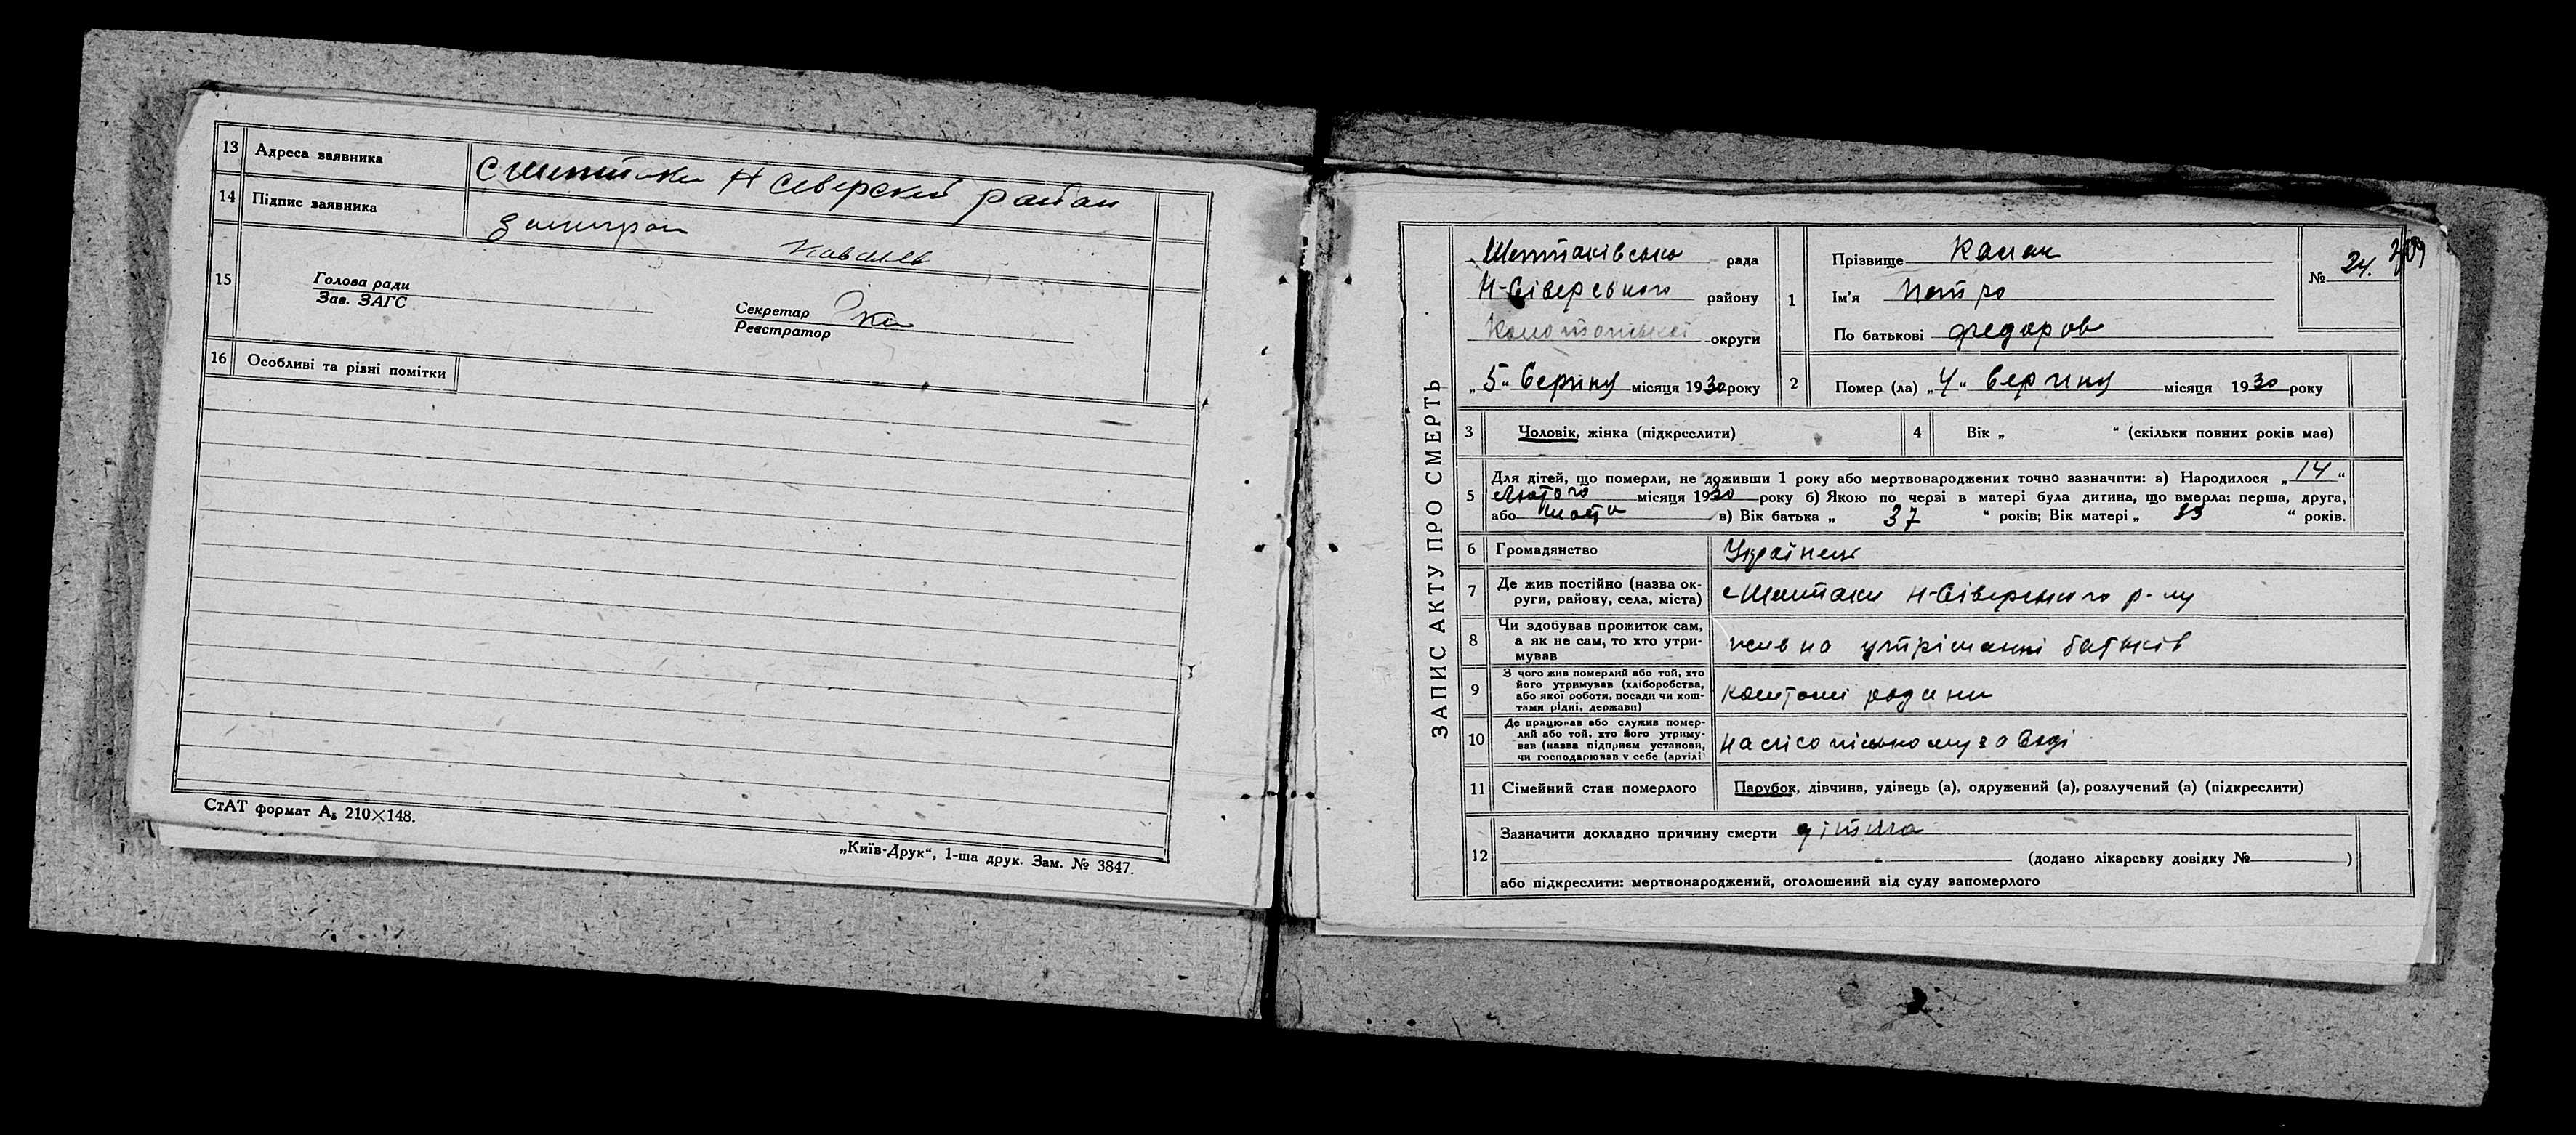 13 Адреса заявника с Шептаки Н Северский район
14 Підпис заявника
15 Голова ради
Зав. ЗАГС
Секретар
Реєстратор
16 Особливі та різні помітки
СтАТ формат А5 210×148.
„Київ-Друк“, 1-ша друк. Зам. № 3847.
ЗАПИС АКТУ ПРО СМЕРТЬ
Шептаківська рада
Н-Сіверського району
Конотопської округи
„5“ Серпня місяця 1930 року
1 Прізвище
Ім'я Петро
По батькові Федоров
№ 24.
209
2 Помер (ла) „4“ Серпня місяця 1930 року
3 Чоловік, жінка (підкреслити)
4 Вік „ “ (скільки повних років має)
5 Для дітей, що померли, не доживши 1 року або мертвонароджених точно зазначити: а) Народилося „14“
Лютого місяця 1930 року б) Якою по черзі в матері була дитина, що вмерла: перша, друга,
або шоста в) Вік батька „ 37 “ років; Вік матері „ “ років.
6 Громадянство Українець
7 Де жив постійно (назва ок-
руги, району, села, міста) с Шептаки Н-Сіверського р-ну
8 Чи здобував прожиток сам,
а як не сам, то хто утри-
мував жив на утріманні батьків
9 З чого жив померлий або той, хто
його утримував (хліборобства,
або якої роботи, посади чи кош-
тами рідні, держави) коштами родини
10 Де працював або служив помер-
лий або той, хто його утриму-
вав (назва підприєм установи,
чи господарював у себе (артілі) на лісопільному заводі
11 Сімейний стан померлого Парубок, дівчина, удівець (а), одружений (а), розлучений (а) (підкреслити)
12 Зазначити докладно причину смерти
(додано лікарську довідку № )
або підкреслити: мертвонароджений, оголошений від суду запомерлого